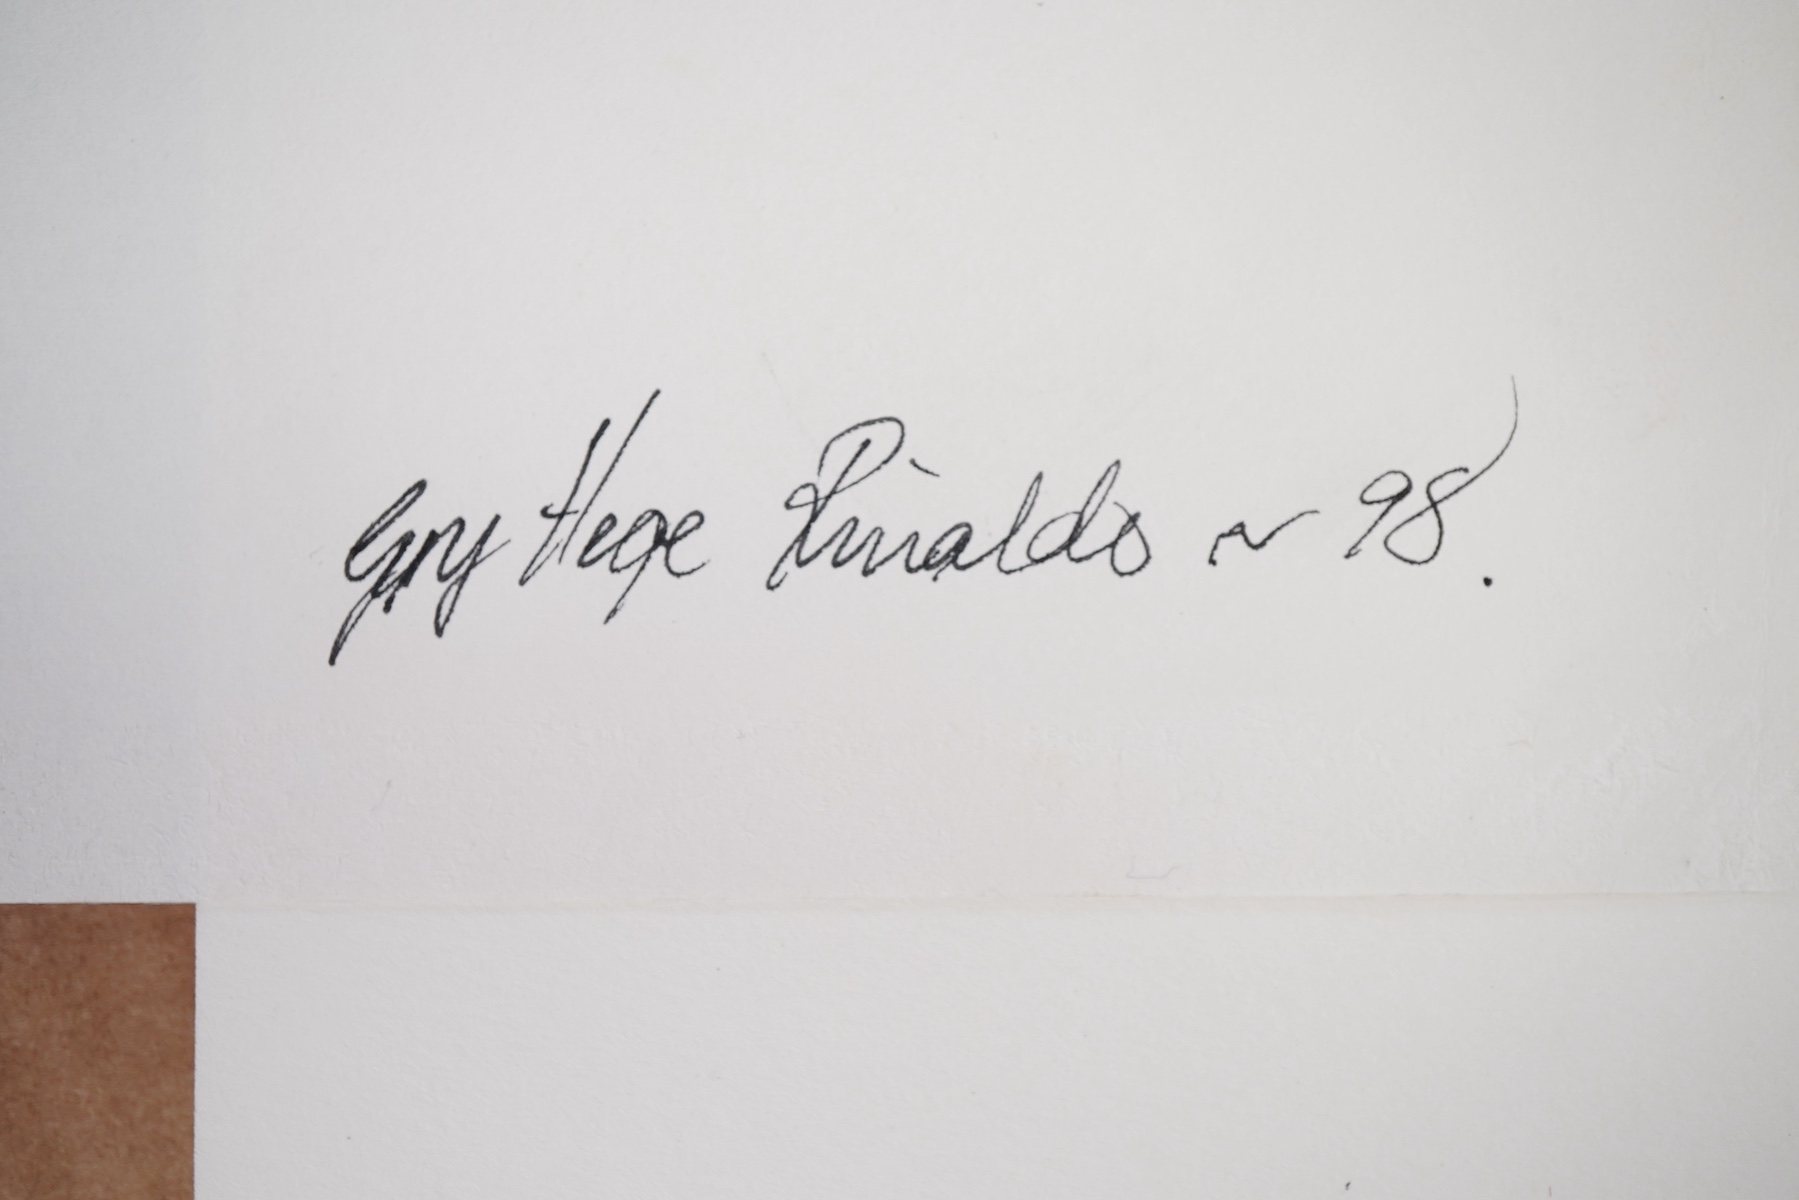 Gry Hege Rinaldo ~ 98.